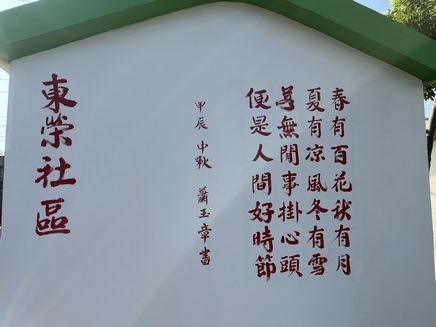 春有百花秋有月
夏有凉風冬有雪
若無閒事掛心頭
便是人間好時節
甲辰中秋 蕭玉章書
東榮社區